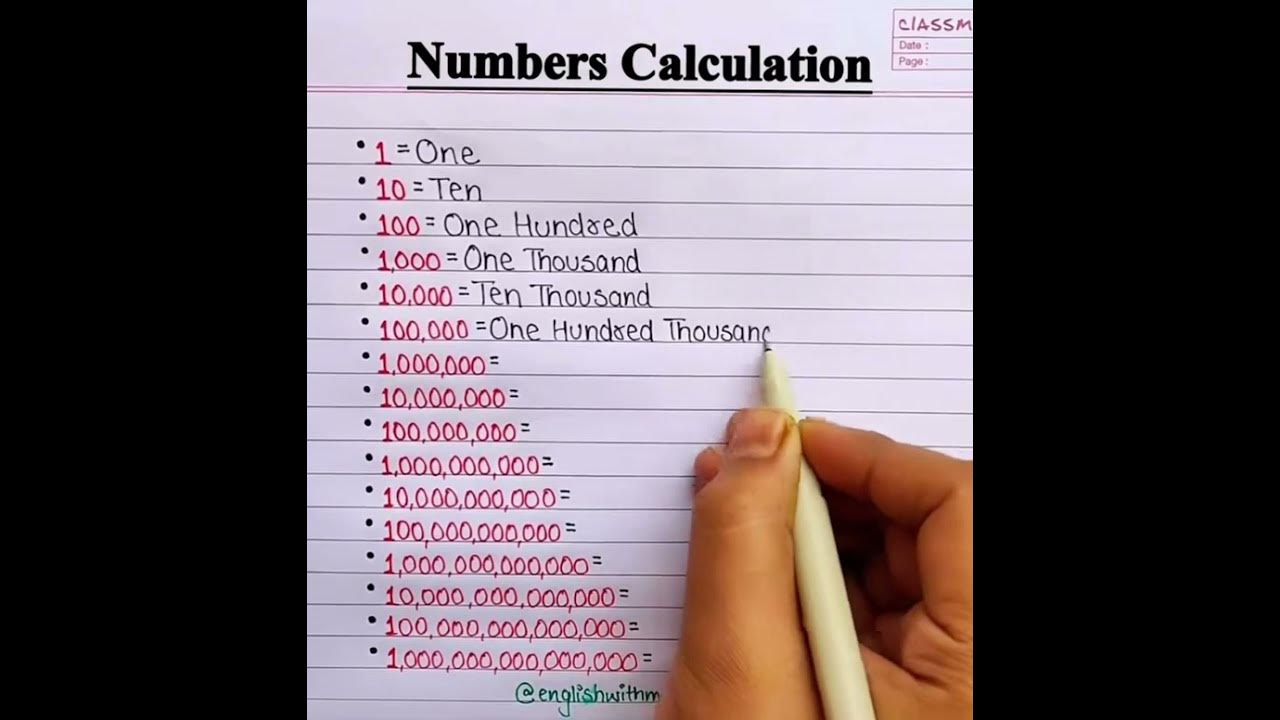 CLASSM
Date :
Page :
Numbers Calculation
• 1 = One
• 10 = Ten
• 100 = One Hundred
• 1,000 = One Thousand
• 10,000 = Ten Thousand
• 100,000 = One Hundred Thousand
• 1,000,000 =
• 10,000,000 =
• 100,000,000 =
• 1,000,000,000 =
• 10,000,000,000 =
• 100,000,000,000 =
• 1,000,000,000,000 =
• 10,000,000,000,000 =
• 100,000,000,000,000 =
• 1,000,000,000,000,000 =
@englishwithm